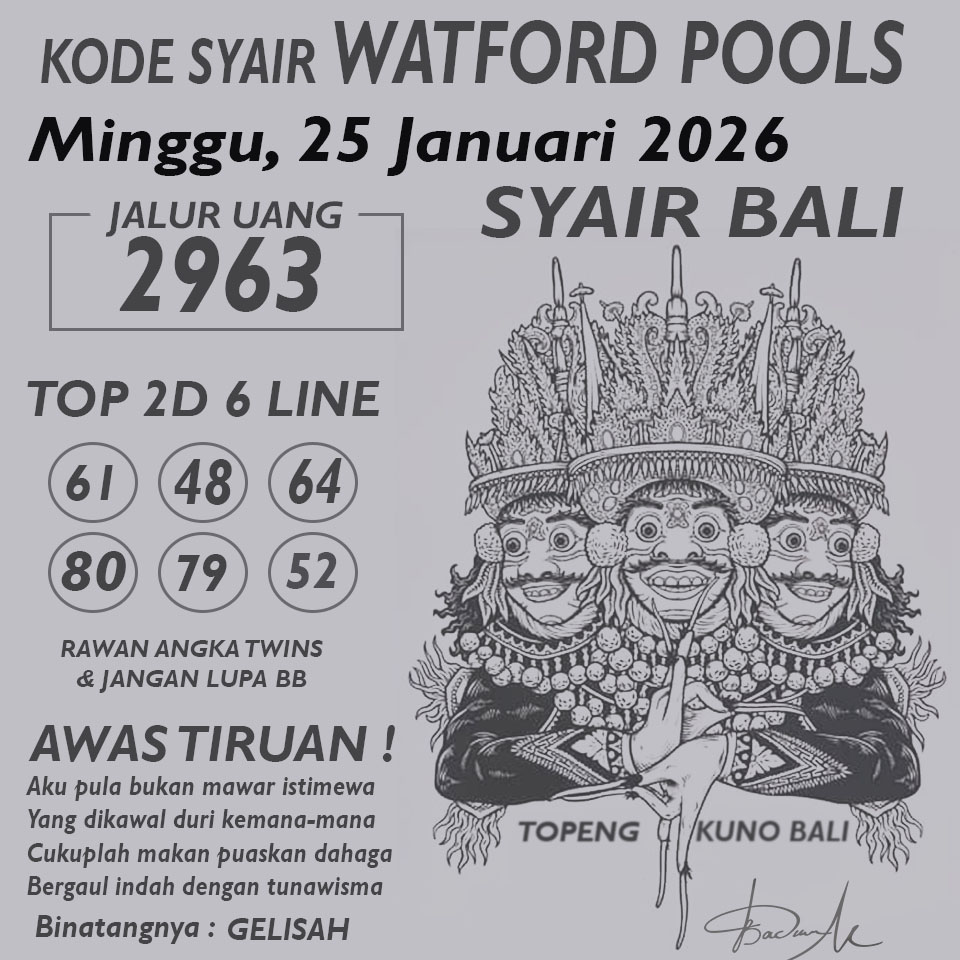 KODE SYAIR WATFORD POOLS
Minggu, 25 Januari 2026
SYAIR BALI
JALUR UANG
2963
TOP 2D 6 LINE
61 48 64
80 79 52
RAWAN ANGKA TWINS
& JANGAN LUPA BB
AWAS TIRUAN !
Aku pula bukan mawar istimewa
Yang dikawal duri kemana-mana
Cukuplah makan puaskan dahaga
Bergaul indah dengan tunawisma
Binatangnya : GELISAH
TOPENG KUNO BALI